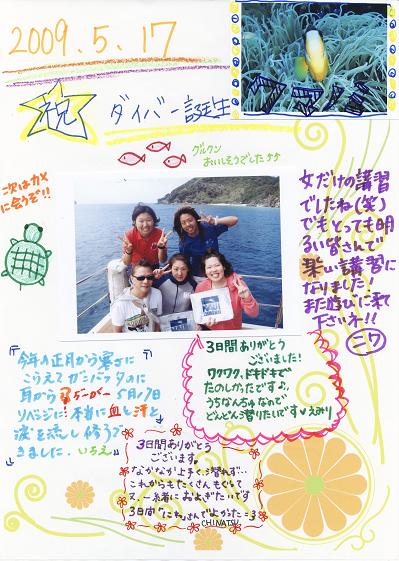 2009.5.17
祝
ダイバー誕生
グルクン
おいしそうでした
次はカメ
に会うぞ!!
女だけの講習
でしたね(笑)
でもとっても明
るい皆さんで
楽しい講習に
なりました!
また遊びに来て
下さいネ!!
ニワ
3日間ありがとう
ございました!
ワクワク、ドキドキで
たのしかったです♪
うちなんちゅなので
どんどん潜りたいです♥えみり
今年の正月から寒さに
こらえてガンバッタのに
耳から
5月17日
リベンジに!本当に血と汗と
涙を流し修了で
きました。いちえ
3日間ありがとう
ございます。
なかなか上手く潜れず…
これからもたくさんもぐって
又、一緒におよぎたいです
3日間"にわ"さんでよかった=3
CHINATSU